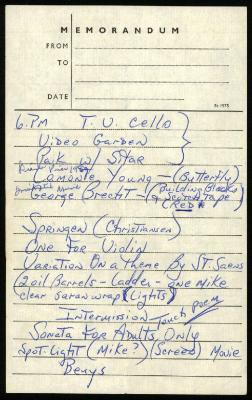 MEMORANDUM
FROM
TO
DATE
6. PM T.V. Cello
Video Garden
Paik w/ Sitar
Lamonte Young — (Butterfly)
George Brecht — (Building Blocks
& Scotch Tape
(RED*
Springen (Christiansen)
One For Violin
Variation On a Theme By ST. Saens
(2 oil Barrels — Ladder — one Mike
clear saran wrap (Lights)
Intermission Touch poem
Sonata For Adults Only
Spot-Light (Mike?) (Screen) Movie
Beuys